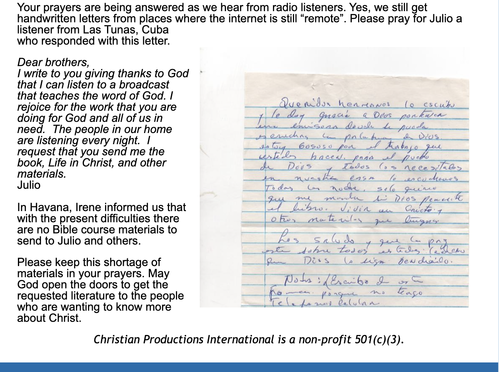 Your prayers are being answered as we hear from radio listeners. Yes, we still get
handwritten letters from places where the internet is still “remote”. Please pray for Julio a
listener from Las Tunas, Cuba
who responded with this letter.
Dear brothers,
I write to you giving thanks to God
that I can listen to a broadcast
that teaches the word of God. I
rejoice for the work that you are
doing for God and all of us in
need. The people in our home
are listening every night. I
request that you send me the
book, Life in Christ, and other
materials.
Julio
In Havana, Irene informed us that
with the present difficulties there
are no Bible course materials to
send to Julio and others.
Please keep this shortage of
materials in your prayers. May
God open the doors to get the
requested literature to the people
who are wanting to know more
about Christ.
Queridos hermanos le escribo
y le doy gracias a Dios
una emisora donde se puede
escuchar la palabra de Dios
estoy por el trabajo que
ustedes hacen para el pueblo
de Dios y todos los necesitados
en nuestra casa lo escuchamos
todas las noches solo quiero
que me manden si Dios permite
el libro. Vivir en Cristo y
otros materiales que tengan
Les saludo y que la paz
este sobre todos ustedes
Dios lo siga bendiciendo.
Nota:
porque no tengo
Christian Productions International is a non-profit 501(c)(3).